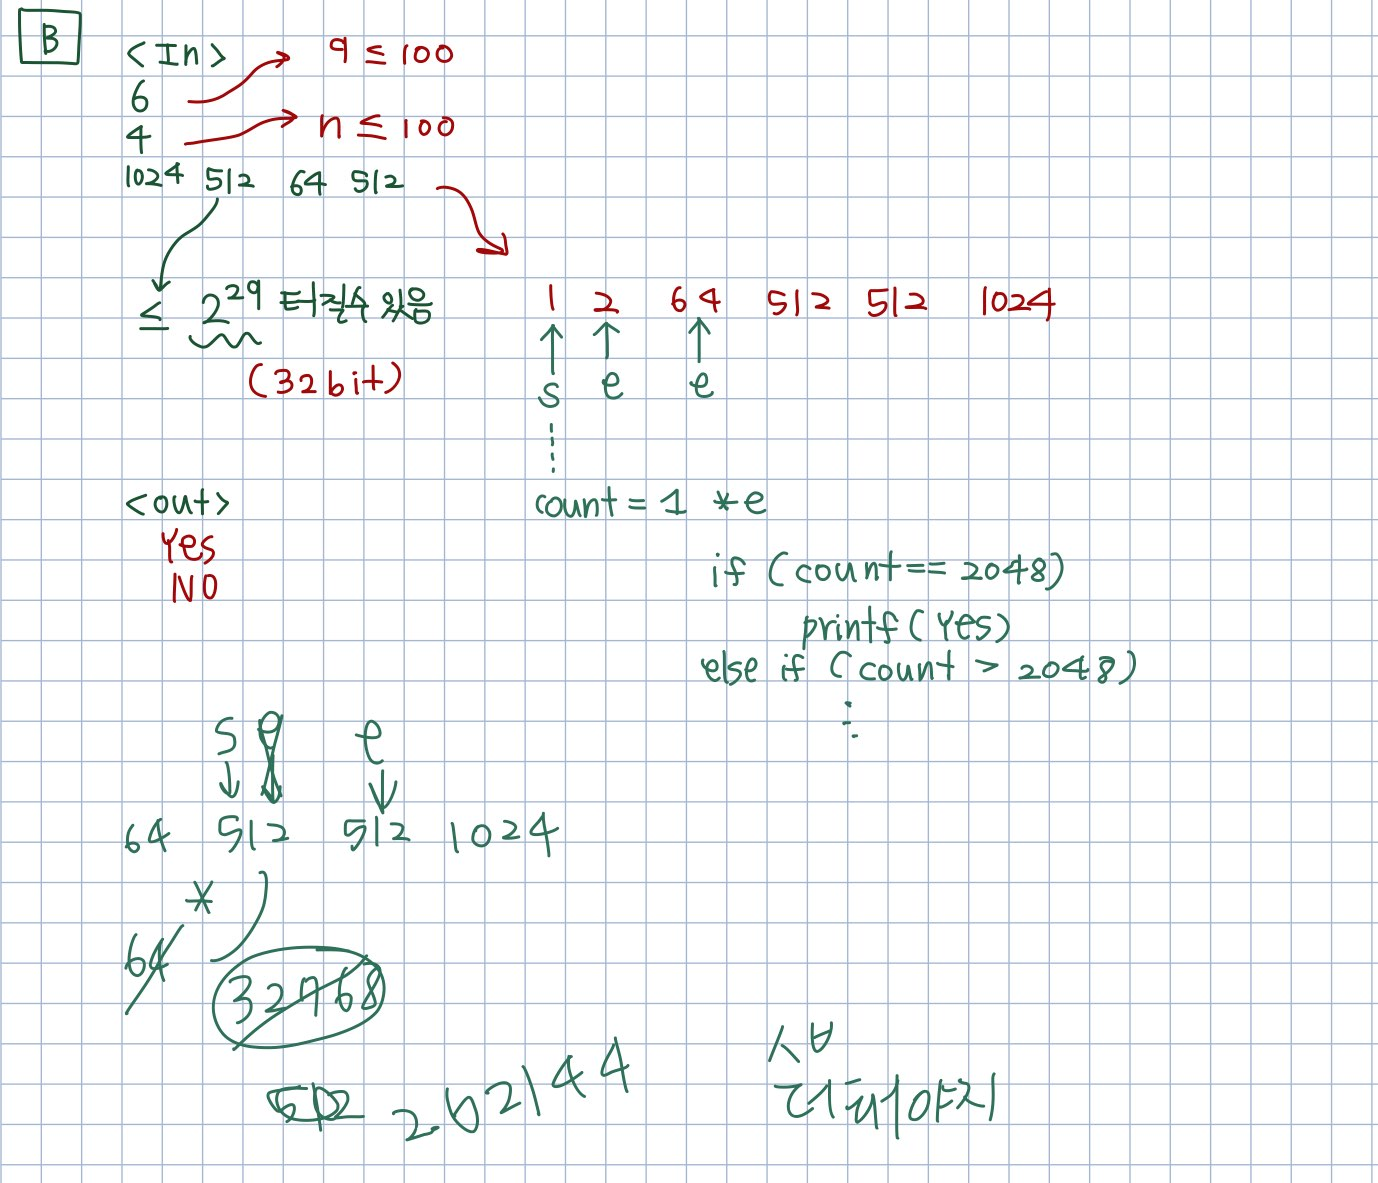 B
<In>
6 → q ≤ 100
4 → n ≤ 100
1024 512 64 512
≤ 2^29 타깃수 있음
(32bit)
1 2 64 512 512 1024
s e e
count = 1 * e
<out>
Yes
NO
if (count == 2048)
printf(Yes)
else if (count > 2048)
s e e
64 512 512 1024
*
64
32768
512 262144
ㅅㅂ